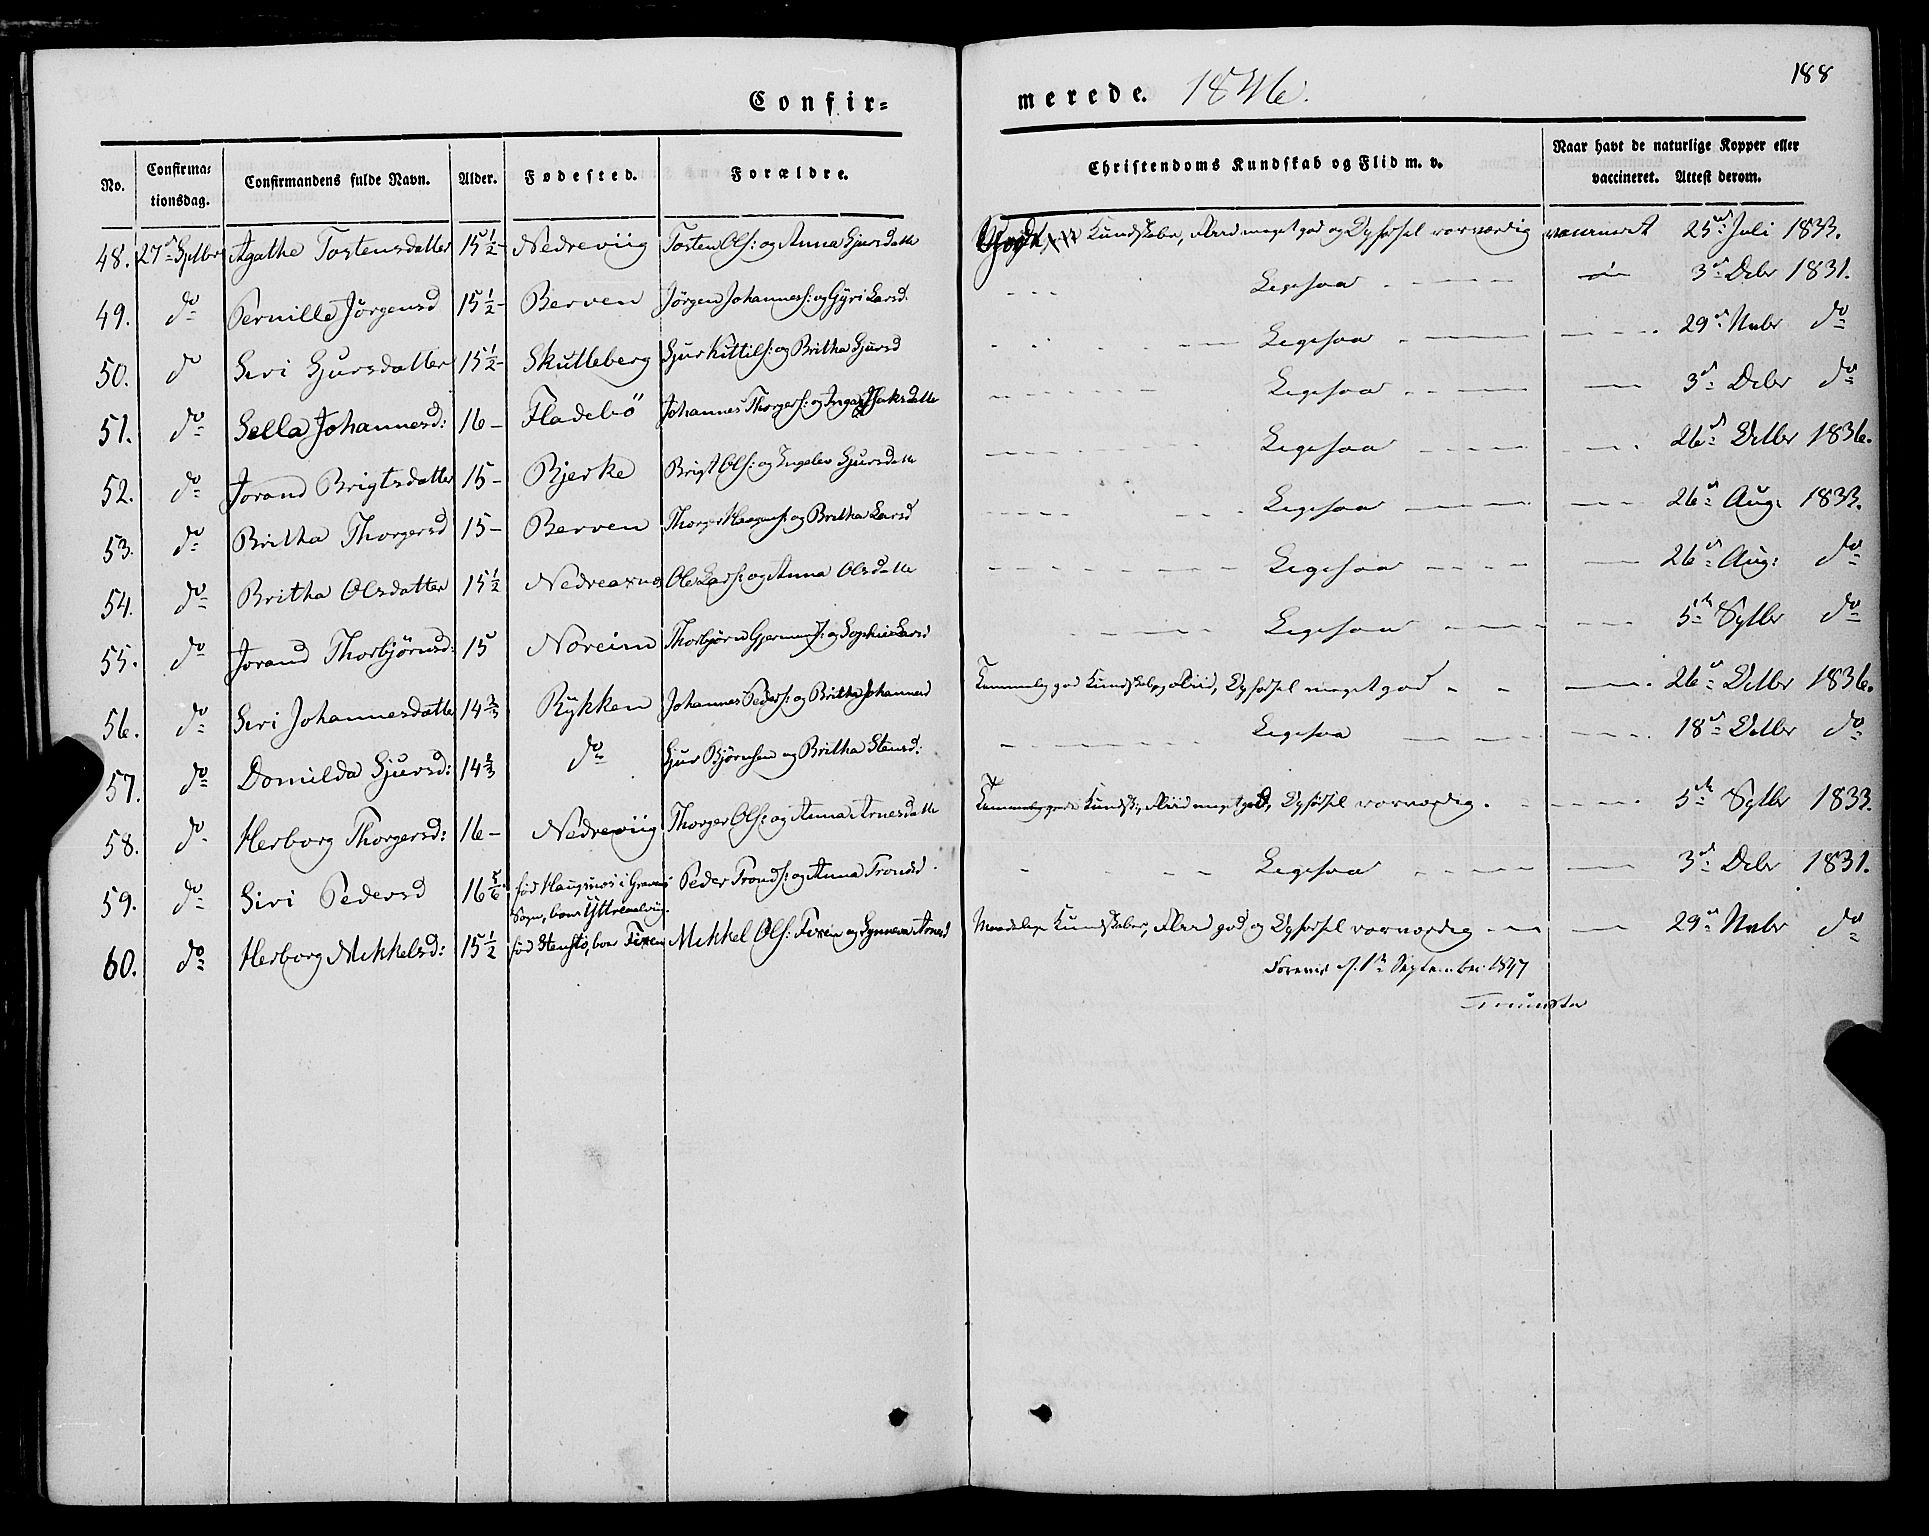 Confir=
merede. 1846.
188
No. Confirma=tionsdag. Confirmandens fulde Navn. Alder. Fødested. Forældre. Christendoms Kundskab og Flid m. v. Naar havt de naturlige Kopper eller vaccineret. Attest derom.
48. 27de Sptbr Agathe Tostensdatter 15 1/2 - Nedreviig Tosten Ols: og Anna Sjursdatt Kundskaber, Fliid meget god og Opførsel værværdig vaccineret 25de Juli 1833.
49. do Pernille Jørgensd 15 1/2 - Berven Jørgen Johannes: og Gyri Larsd. - - - Ligesaa - - - - 3de Debr 1831.
50. do Siri Sjursdatter 15 1/2 - Skutleberg Sjur Kittils: og Britha Sjursd - - - Ligesaa - - - - 29de Nvbr do
51. do Sella Johannesd: 16 - Fladebö Johannes Thorgers: og Inga Isaksdatte - - - Ligesaa - - - - 3de Debr do
52. do Jorand Brigtsdatter 15 - Bjerke Brigt Ols: og Engelev Sjursdatt - - - Ligesaa - - - - 26de Octbr 1836.
53. do Britha Thorgersd 15 - Berven Thorger Haagens: og Britha Larsd - - - Ligesaa - - - - 26de Aug: 1833.
54. do Britha Olsdatter 15 1/2 Nedreaxnes Ole Lars: og Anna Olsdatte - - - Ligesaa - - - - 26de Aug: do
55. do Jorand Thorbjörnsd: 15 Noreim Thorbjörn Gjermunds: og Sophie Larsd - - - Ligesaa - - - - 5te Sptbr do
56. do Siri Johannesdatter 14 2/3 Rykken Johannes Peders: og Britha Johannesd Temmelig god Kundskab og Fliid, Opførsel meget god - - - 26de Octbr 1836.
57. do Domilda Sjursd: 14 2/3 do Sjur Bjørnsen og Britha Stensd: - - - Ligesaa - - - - 18de Octbr do
58. do Herborg Thorgersd: 16 - Nedreviig Thorger Ols: og Anna Arnesdatte Temmelig gode Kundsk:, Fliid meget god, Opførsel værværdig. - - - 5te Sptbr 1833.
59. do Siri Pedersd 16 5/6 fød Haugsnes i Gravens Sogn, boer Ytreaalvig. Peder Tronds: og Anna Trondsd. - - - Ligesaa - - - - 3de Debr 1831.
60. do Herborg Mikkelsd: 15 1/2 fød Stenstø, boer Fixen Mikkel Ols: Fixen og Synneva Arnesd Maadelige Kundskaber, Fliid god og Opførsel værværdig - - - 29de Nvbr do
Foreviist d. 1ste September 1847